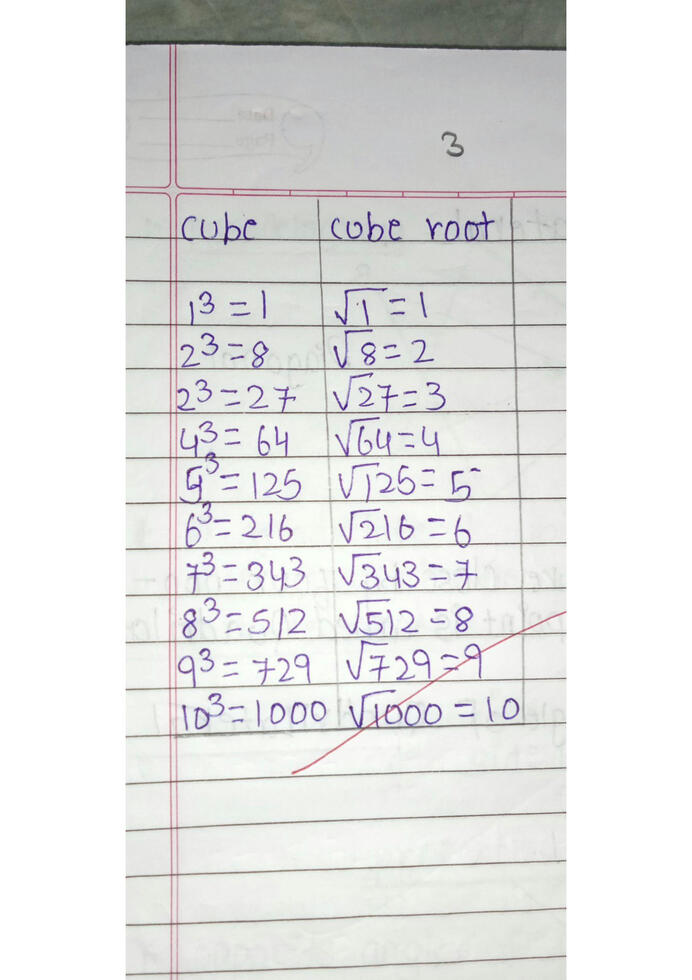 3
cube cube root
1³=1 √1=1
2³=8 √8=2
2³=27 √27=3
4³=64 √64=4
5³=125 √125=5
6³=216 √216=6
7³=343 √343=7
8³=512 √512=8
9³=729 √729=9
10³=1000 √1000=10